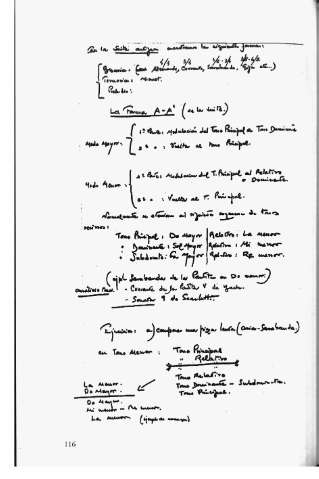 En la Suite antigua encontramos las siguientes formas:
4/4 3/4 3/2 - 3/4 3/8 - 6/8
Binaria: (para Allemande, Corrente, Sarabanda, Giga etc..)
Ternaria: Minuet.
La Forma A-A' (en la suite.)
Modo Mayor: 1ª Parte: Modulación del Tono Principal al Tono Dominante
2ª " : Vuelta al tono Principal.
Modo Menor: 1ª Parte: Modulación del T. Principal al Relativo
o Dominante.
2ª " : Vuelta al T. Principal.
Normalmente se atenían al siguiente esquema de tonos
vecinos:
Tono Principal: Do Mayor Relativo: La menor
" Dominante: Sol Mayor Relativo: Mi menor
" Subdomte: Fa Mayor Relativo: Re menor.
(ejpl. Sarabandas de la Partita en Do menor)
- Corrente de la Partita V de
- Sonata 9 de Scarlatti.
Ejercicios: a) componer una pieza lenta (Aria-Sarabanda)
en Tono Menor: Tono Principal
" Relativo
Tono Relativo
La Menor. Tono Dominante - Subdominte.
Do Mayor. Tono Principal.
Do Mayor.
Mi menor - Re menor.
La menor (ejemplo en menor)
116